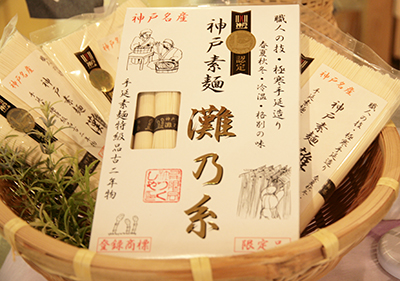 職人の技・極寒手延造り
春夏秋冬・冷温・格別の味
認定
神戸名産
神戸素麺
灘乃糸
手延素麺特級品古二年物
登録商標
限定品
神戸名産
手延素麺
職人の技・極寒手延造り
神戸素麺